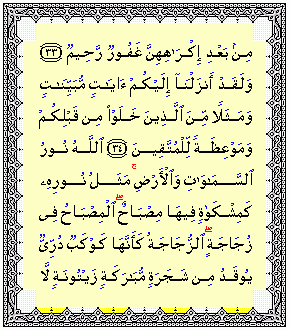 مِنۢ بَعْدِ إِكْرَٰهِهِنَّ غَفُورٌ رَّحِيمٌ ﴿٣٣﴾
وَلَقَدْ أَنزَلْنَآ إِلَيْكُمْ ءَايَٰتٍ مُّبَيِّنَٰتٍ
وَمَثَلًا مِّنَ ٱلَّذِينَ خَلَوْا۟ مِن قَبْلِكُمْ
وَمَوْعِظَةً لِّلْمُتَّقِينَ ﴿٣٤﴾ ٱللَّهُ نُورُ
ٱلسَّمَٰوَٰتِ وَٱلْأَرْضِ ۚ مَثَلُ نُورِهِۦ
كَمِشْكَوٰةٍ فِيهَا مِصْبَاحٌ ۖ ٱلْمِصْبَاحُ فِى
زُجَاجَةٍ ۖ ٱلزُّجَاجَةُ كَأَنَّهَا كَوْكَبٌ دُرِّىٌّ
يُوقَدُ مِن شَجَرَةٍ مُّبَٰرَكَةٍ زَيْتُونَةٍ لَّا